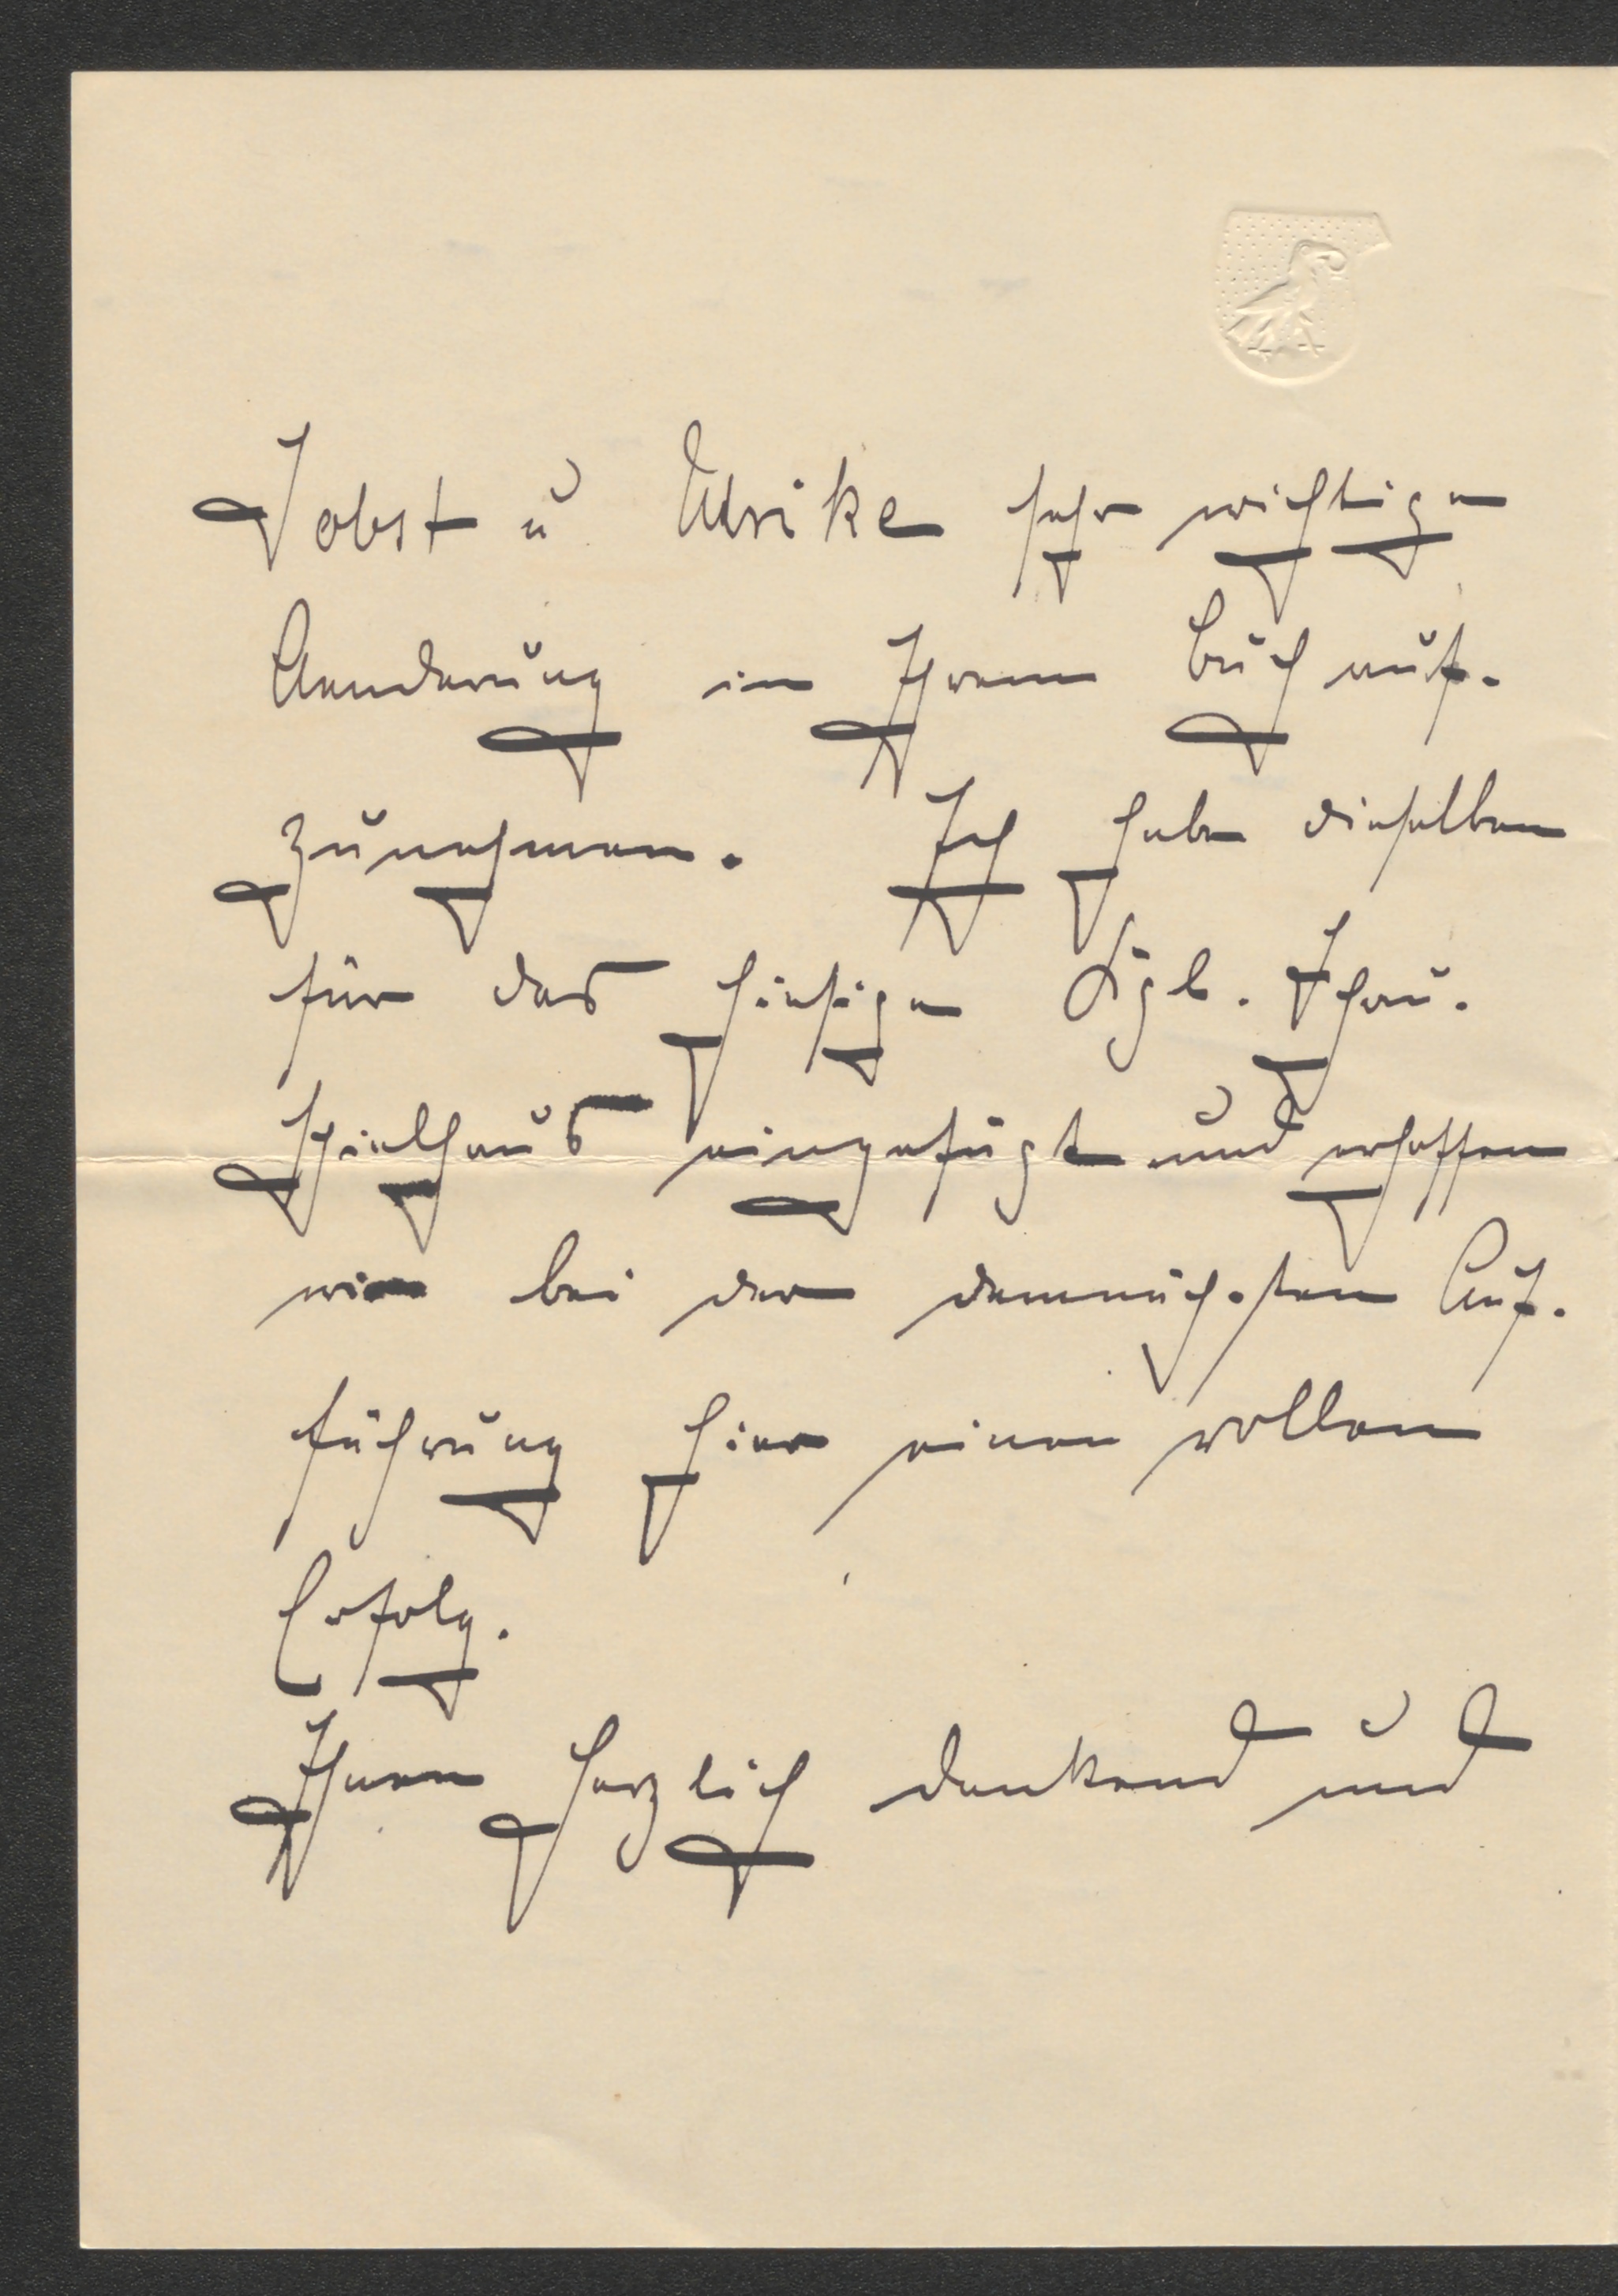 Jobst u Ulrike sehr wichtige
Aenderung in Ihrem Buch auf-
zunehmen. Ich habe dieselben
für das hiesige Kgl. Schau-
Spielhaus eingefügt und erhoffen
wir bei der demnächsten Auf-
führung hier einen vollen
Erfolg.
Ihnen herzlich dankend und